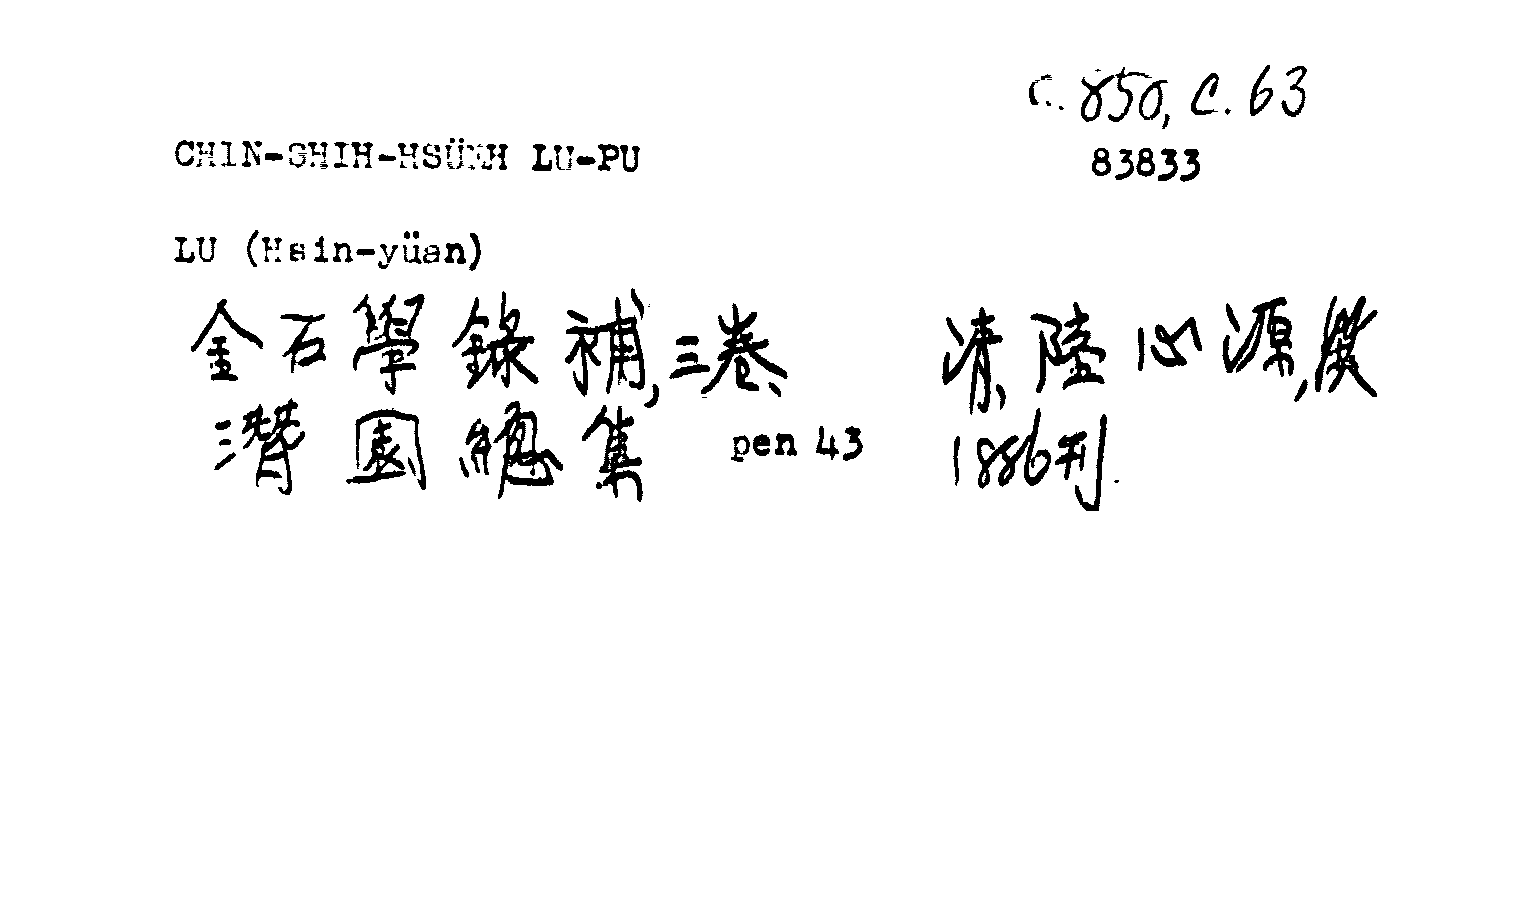 C. 850, C. 63
CHIN-SHIH-HSÜEH LU-PU
83833
LU (Hsin-yüan)
金石學錄補, 三卷、 清、陸心源, 撰
潛園總集 pen 43 1886刊.